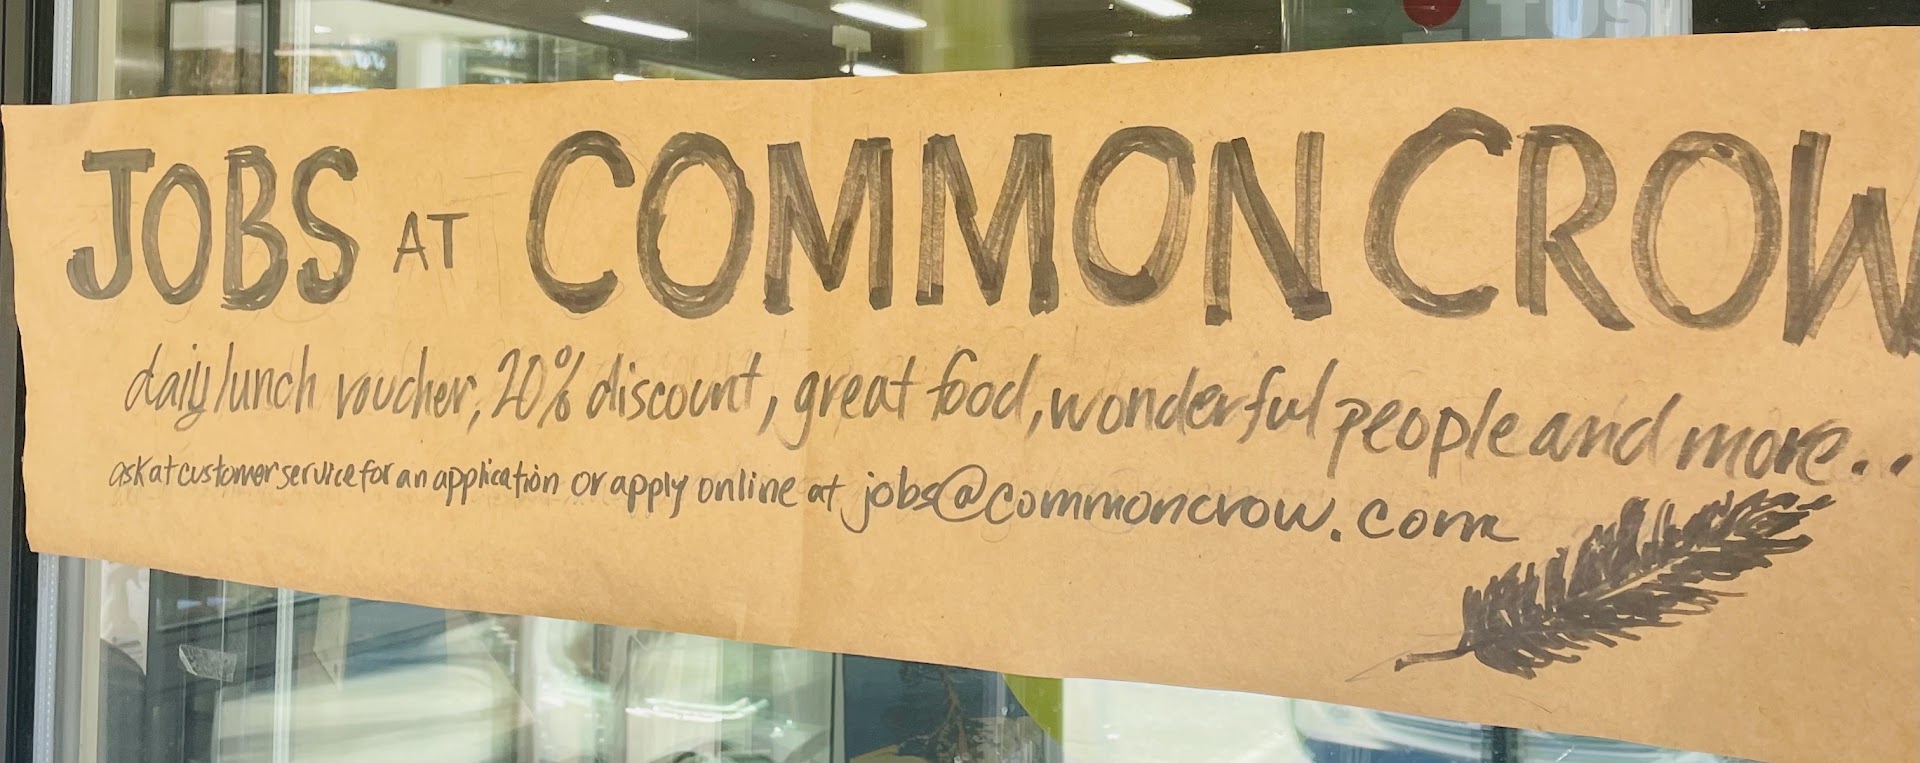 JOBS AT COMMON CROW
daily lunch voucher, 20% discount, great food, wonderful people and more..
ask at customer service for an application or apply online at jobs@commoncrow.com